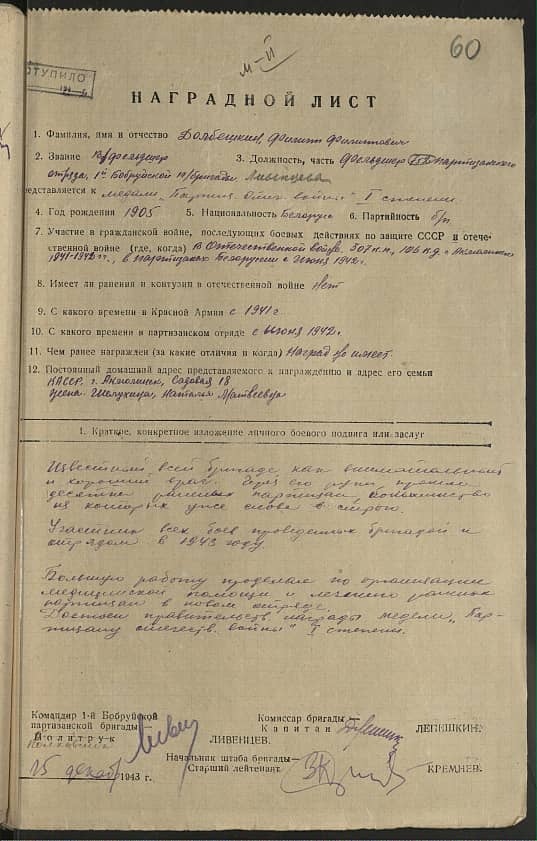 М-II
60
ОТУПИЛО
НАГРАДНОЙ ЛИСТ
1. Фамилия, имя и отчество Филипп Филиппович
2. Звание в/фельдшер 3. Должность, часть Фельдшер партизанского
отряда, 1й Бобруйской п/бригады Ливенцева
редставляется к медали „Партизан Отеч. войны" I степени.
4. Год рождения 1905 5. Национальность Белорус 6. Партийность б/п
7. Участие в гражданской войне, последующих боевых действиях по защите СССР и отече-
ственной войне (где, когда) В Отечественной войне, 307 п.п., 106 п.д.
1941-1942 гг., в партизанах Белоруссии с Июня 1942г.
8. Имеет ли ранения и контузии в отечественной войне Нет
9. С какого времени в Красной Армии с 1941г.
10. С какого времени в партизанском отряде с Июня 1942г.
11. Чем ранее награжден (за какие отличия и когда) Наград не имеет.
12. Постоянный домашний адрес представляемого к награждению и адрес его семьи
КАССР, г. Акмолинск, Садовая 18
жена Наталья Матвеевна
1. Краткое, конкретное изложение личного боевого подвига или заслуг
Известный всей бригаде, как внимательный
и хороший врач. Через его руки прошли
десятки раненых партизан, большинство
из которых уже снова в строю.
Участник всех боев проведенных бригадой и
отрядом в 1943 году.
Большую работу проделал по организации
медицинской помощи и лечению раненых
партизан в новом отряде.
Достоин правительств. награды медали „Пар-
тизану отечеств. войны" I степени.
Командир 1-й Бобруйской
партизанской бригады—
Политрук
Полковник
ЛИВЕНЦЕВ.
Комиссар бригады—
Капитан
ЛЕПЕШКИН.
Начальник штаба бригады—
Старший лейтенант
КРЕМНЕВ.
25 декабр 1943 г.